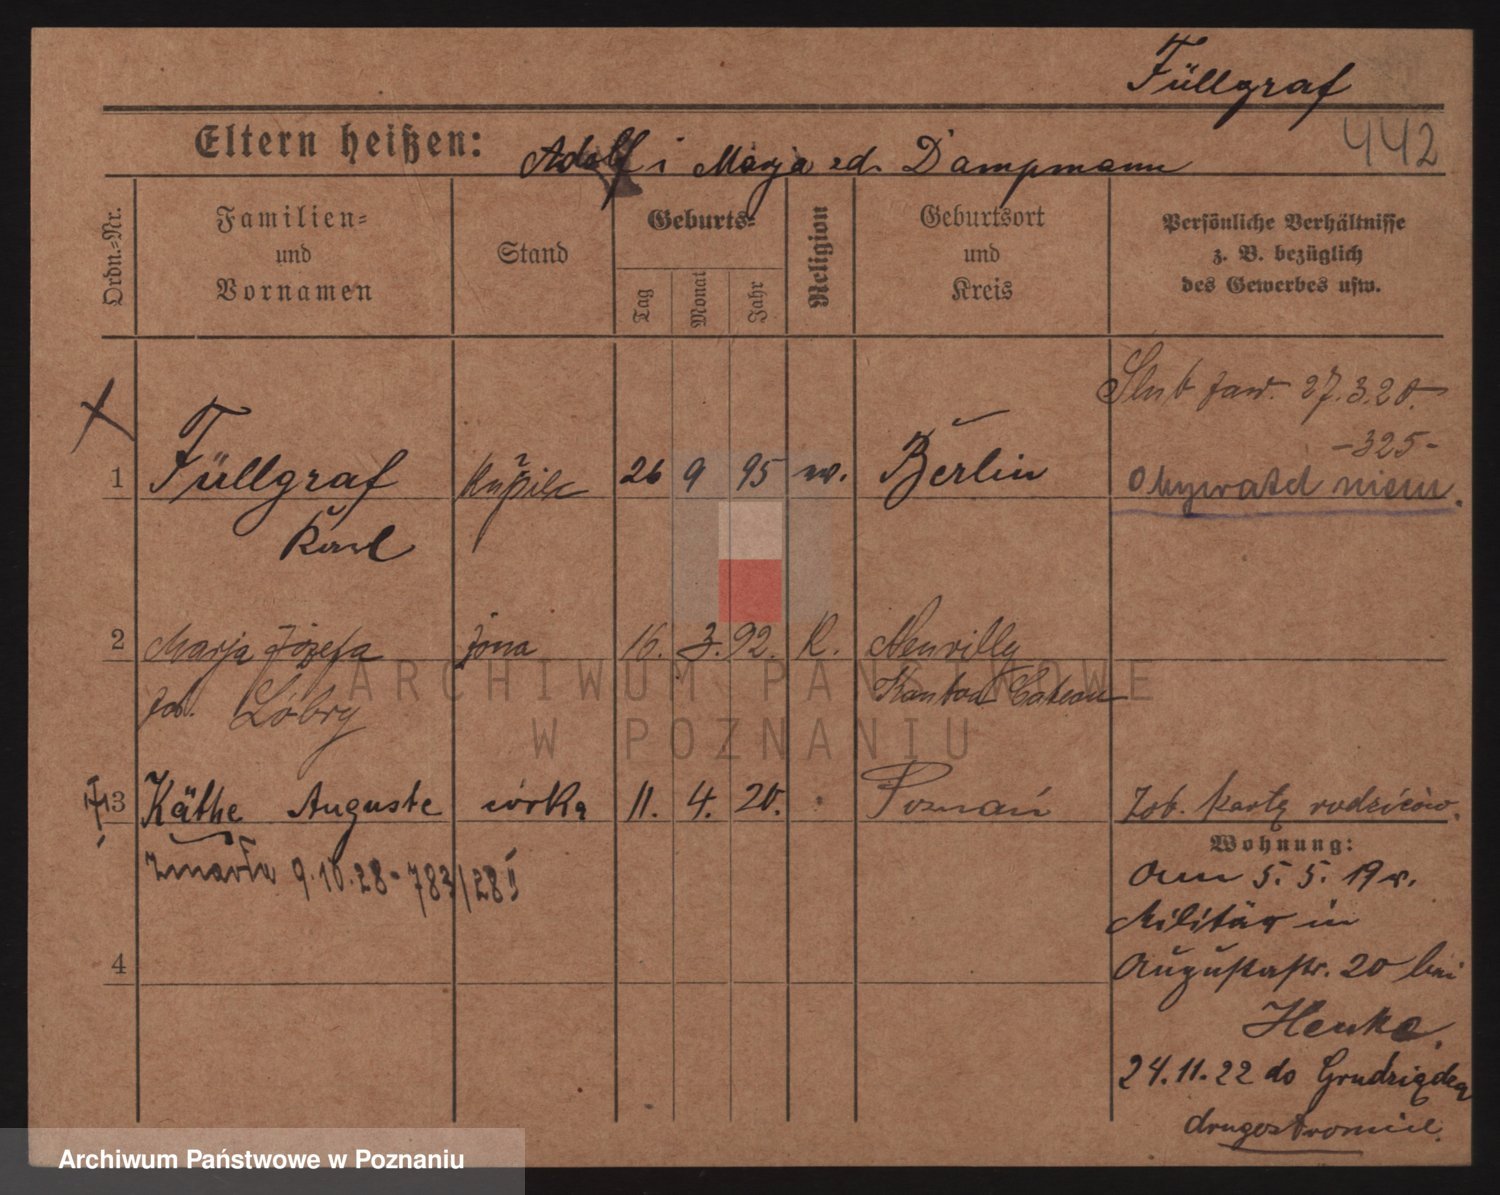 Füllgraf
442
Eltern heißen: Adolf i Marja zd. Dampmann
Ordn.=Nr.
Familien=
und
Vornamen
Stand
Geburts=
Tag
Monat
Jahr
Religion
Geburtsort
und
Kreis
Persönliche Verhältnisse
z. B. bezüglich
des Gewerbes usw.
Ślub zaw. 27.3.20.
-325-
1 Füllgraf 26 9 95 ew. Berlin Obywatel niem.
Karl
2 Marja Józefa żona 16. 3. 92. K. Neuvilly
Löbry Kanton Cateau
3 Käthe Auguste córka 11. 4. 20. Poznań Zob. kartę rodziców.
Wohnung:
zmarła 9.10.28 - 783/28
5. 5. 19 v.
Militär in
4
Augustastr. 20 bei
Henke.
24.11.22 do Grudziądza
drugostronnie.
ARCHIWUM PAŃSTWOWE
W POZNANIU
Archiwum Państwowe w Poznaniu